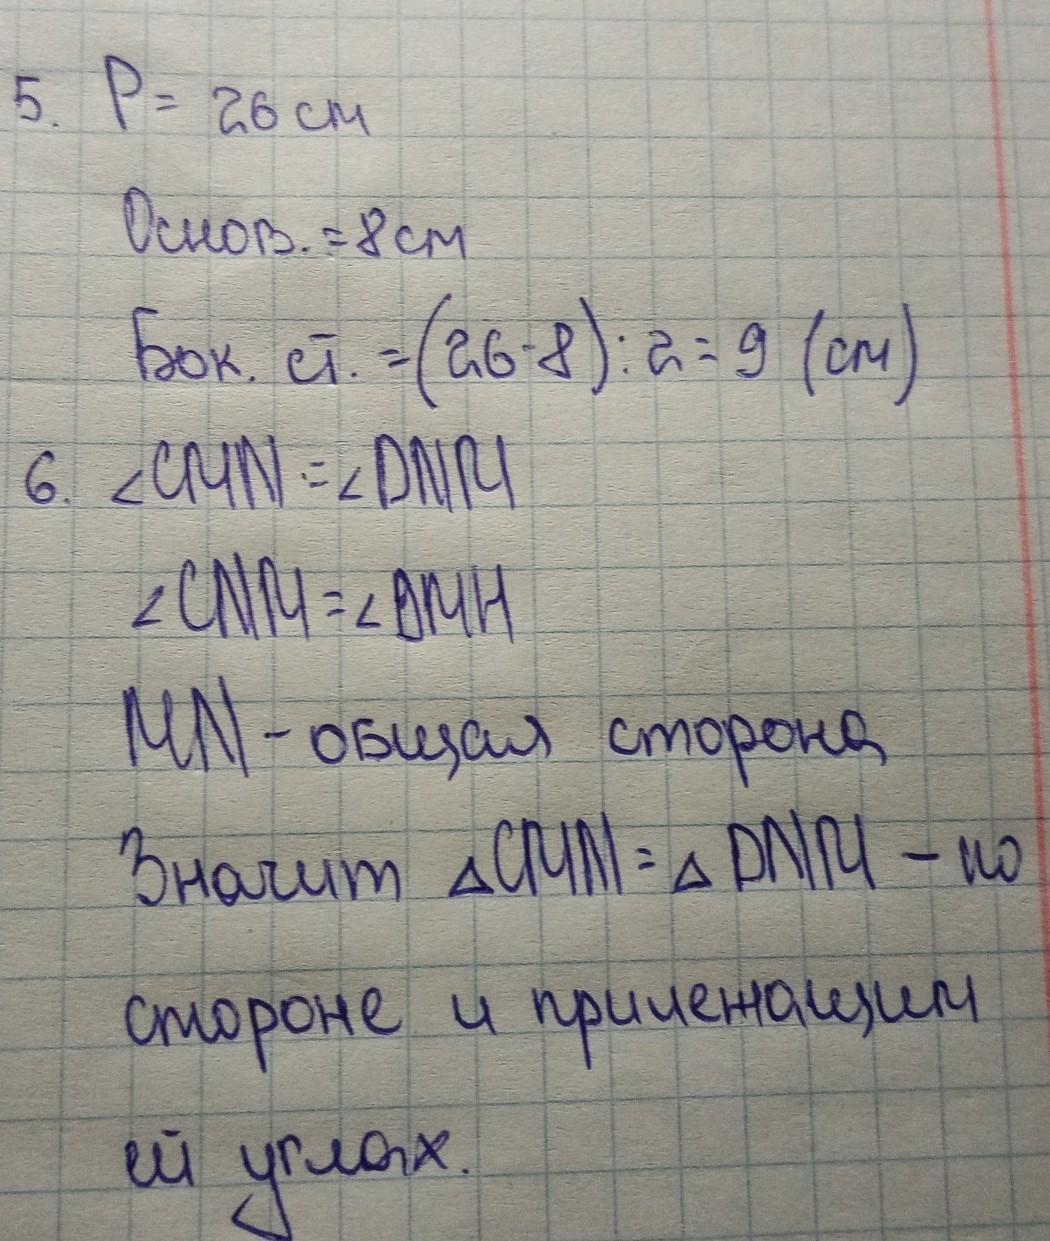 5. P = 26 см
Основ. = 8 см
Бок. ст. = (26-8) : 2 = 9 (см)
6. ∠CMN = ∠DNM
∠CNM = ∠DMN
MN - общая сторона
Значит △CMN = △DNM - по
стороне и прилежащим
ей углах.